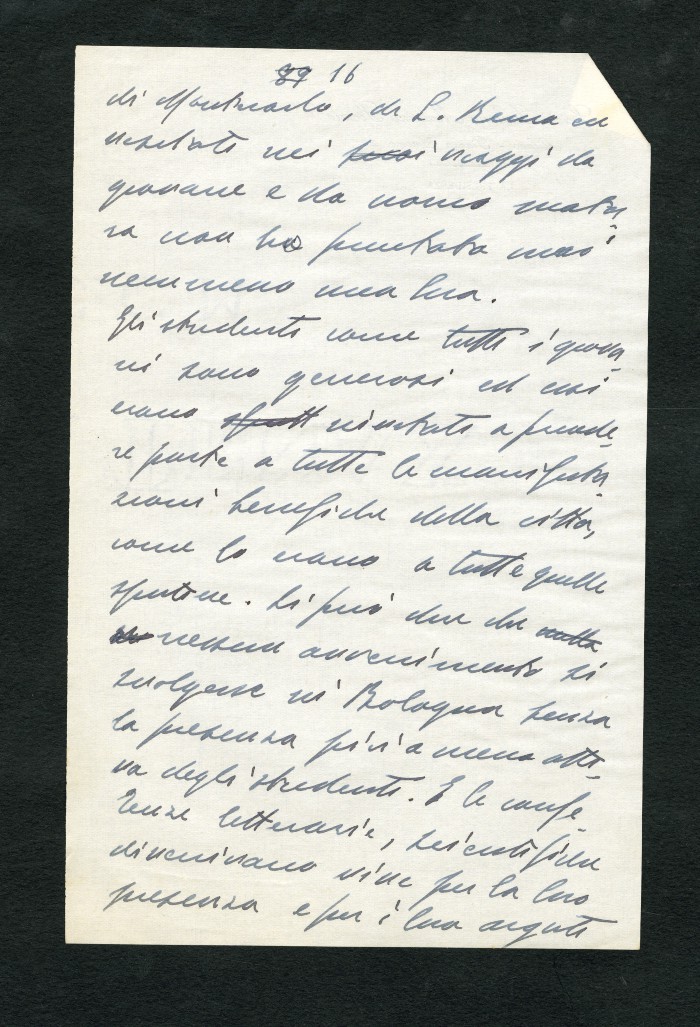 89 16
di Montecarlo, di S. Remo ed
visitate nei suoi viaggi da
giovane e da uomo matu-
ro non ha puntata mai
nemmeno una lira.
Gli studenti come tutti i giova-
ni sono generosi ed essi
erano invitati a prende-
re parte a tutte le manifesta-
zioni benefiche della città,
come lo erano a tutte quelle
sportive. Si può dire che nulla
nessun avvenimento si
svolgesse in Bologna senza
la presenza più o meno atti-
va degli studenti. E le confe-
renze letterarie, scientifiche
divenivano vive per la loro
presenza e per i loro arguti